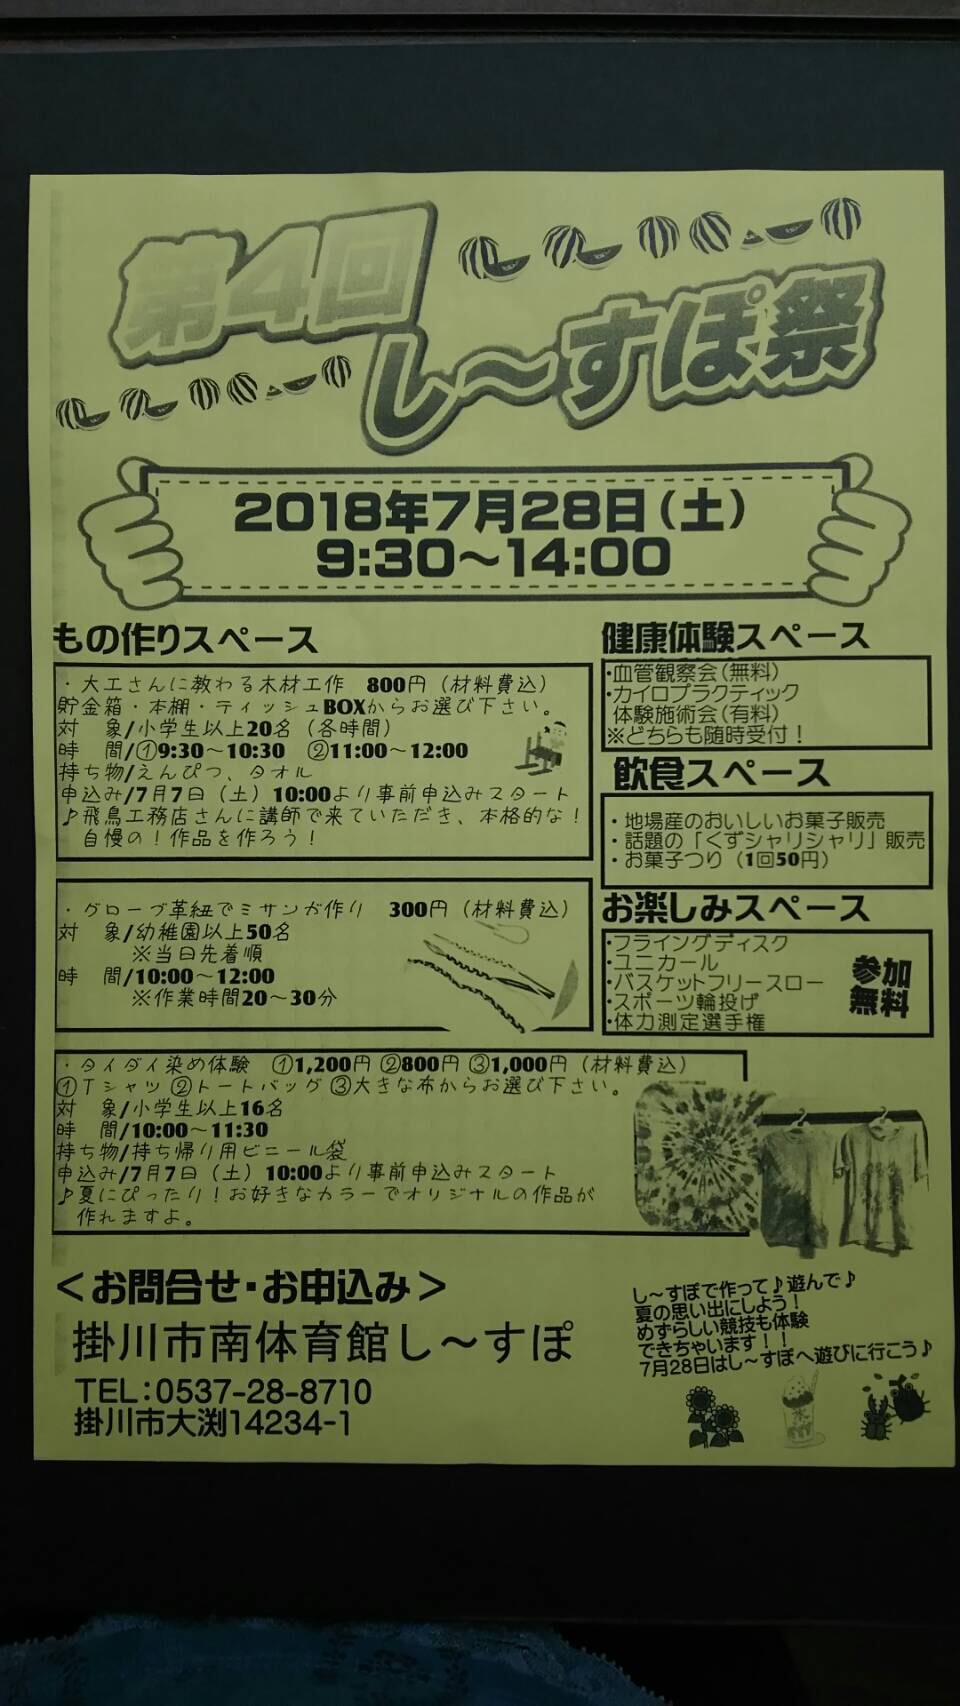 第4回
し〜すぽ祭
2018年7月28日(土)
9:30〜14:00
もの作りスペース
・大工さんに教わる木材工作 800円(材料費込)
貯金箱・本棚・ティッシュBOXからお選び下さい。
対 象/小学生以上20名(各時間)
時 間/①9:30〜10:30 ②11:00〜12:00
持ち物/えんぴつ、タオル
申込み/7月7日(土)10:00より事前申込みスタート
♪飛鳥工務店さんに講師で来ていただき、本格的な!
自慢の!作品を作ろう!
・グローブ革紐でミサンガ作り 300円(材料費込)
対 象/幼稚園以上50名
※当日先着順
時 間/10:00〜12:00
※作業時間20〜30分
・タイダイ染め体験 ①1,200円 ②800円 ③1,000円(材料費込)
①Tシャツ ②トートバッグ ③大きな布からお選び下さい。
対 象/小学生以上16名
時 間/10:00〜11:30
持ち物/持ち帰り用ビニール袋
申込み/7月7日(土)10:00より事前申込みスタート
♪夏にぴったり!お好きなカラーでオリジナルの作品が
作れますよ。
健康体験スペース
・血管観察会(無料)
・カイロプラクティック
体験施術会(有料)
※どちらも随時受付!
飲食スペース
・地場産のおいしいお菓子販売
・話題の「くずシャリシャリ」販売
・お菓子つり(1回50円)
お楽しみスペース
・フライングディスク
・ユニカール
・バスケットフリースロー
・スポーツ輪投げ
・体力測定選手権
参加
無料
<お問合せ・お申込み>
掛川市南体育館し〜すぽ
TEL:0537-28-8710
掛川市大渕14234-1
し〜すぽで作って♪遊んで♪
夏の思い出にしよう!
めずらしい競技も体験
できちゃいます!!
7月28日はし〜すぽへ遊びに行こう♪
氷